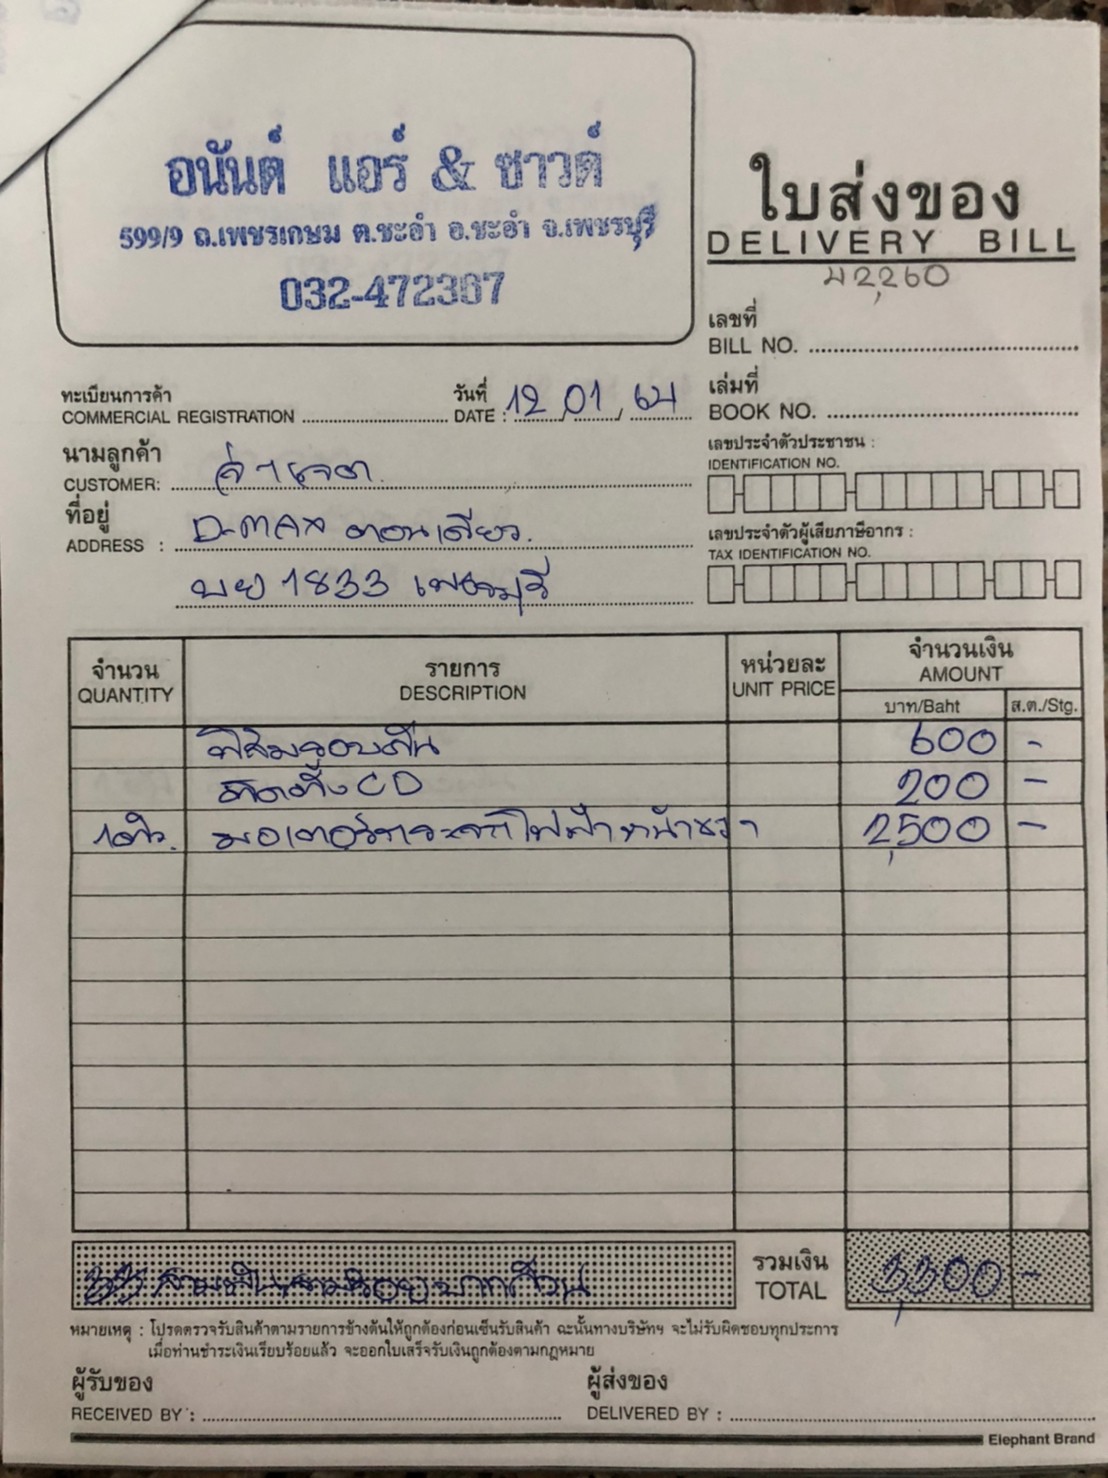 อนันต์ แอร์ & ซาวด์
599/9 ถ.เพชรเกษม ต.ชะอำ อ.ชะอำ จ.เพชรบุรี
032-472367
ใบส่งของ
DELIVERY BILL
2,260
เลขที่
BILL NO.
ทะเบียนการค้า
COMMERCIAL REGISTRATION
วันที่
DATE : 12 01 64
เล่มที่
BOOK NO.
นามลูกค้า
CUSTOMER:
เลขประจำตัวประชาชน :
IDENTIFICATION NO.
ที่อยู่
ADDRESS : D-MAX ตอนเดียว
บย 1833 เพชรบุรี
เลขประจำตัวผู้เสียภาษีอากร :
TAX IDENTIFICATION NO.
จำนวน
QUANTITY
รายการ
DESCRIPTION
หน่วยละ
UNIT PRICE
จำนวนเงิน
AMOUNT
บาท/Baht
ส.ต./Stg.
ฟิล์มรอบคัน 600 -
ติดตั้ง CD 200 -
1 ตัว. มอเตอร์กระจกไฟฟ้าหน้าขวา 2,500 -
สามพันสามร้อยบาทถ้วน
รวมเงิน
TOTAL
3,300 -
หมายเหตุ : โปรดตรวจรับสินค้าตามรายการข้างต้นให้ถูกต้องก่อนเซ็นรับสินค้า ฉะนั้นทางบริษัทฯ จะไม่รับผิดชอบทุกประการ
เมื่อท่านชำระเงินเรียบร้อยแล้ว จะออกใบเสร็จรับเงินถูกต้องตามกฎหมาย
ผู้รับของ
RECEIVED BY :
ผู้ส่งของ
DELIVERED BY :
Elephant Brand